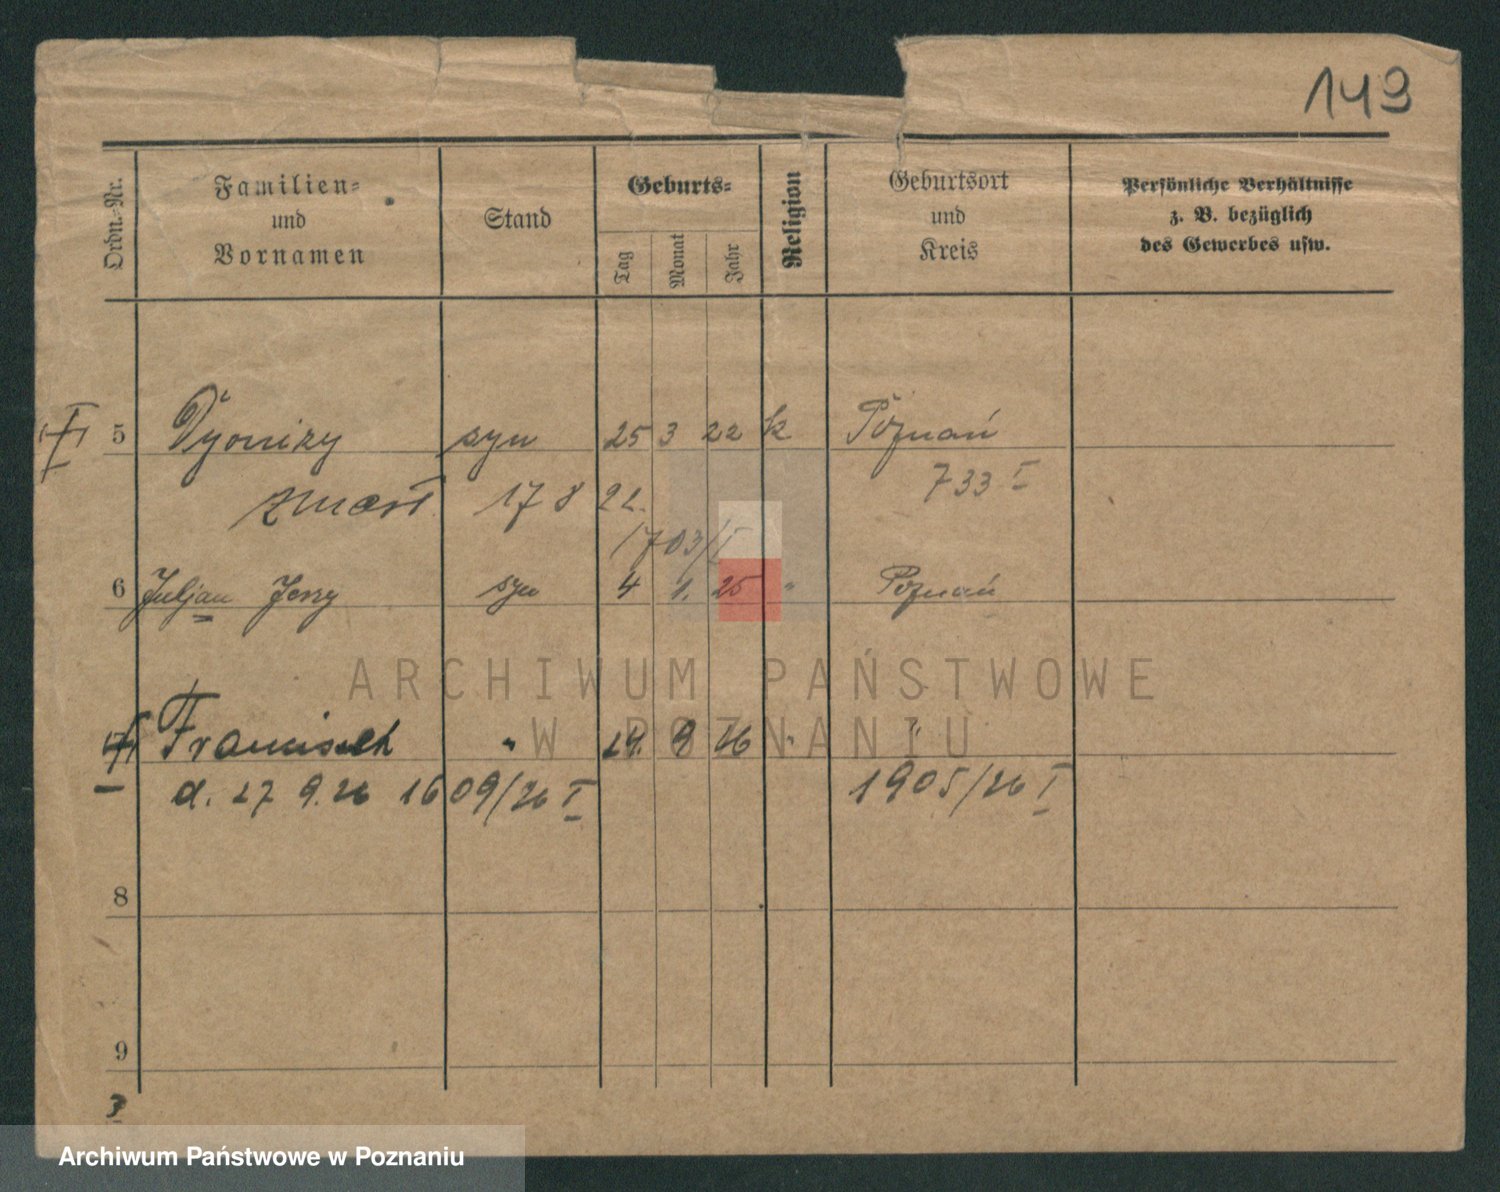 149
Ordn.-Nr.
Familien-
und
Vornamen
Stand
Geburts-
Tag
Monat
Jahr
Religion
Geburtsort
und
Kreis
Persönliche Verhältnisse
z. B. bezüglich
des Gewerbes usw.
5 Dyonizy syn 25 3 22 k Poznań
733 I
zmarł 17 8 22.
1703/I
6 Juljan Jerzy syn 4 1. 25 " Poznań
7 Franciszek " 14. 9 26 " "
d. 27 9. 26 1609/26 I 1905/26 I
8
9
3
ARCHIWUM PAŃSTWOWE
W POZNANIU
Archiwum Państwowe w Poznaniu